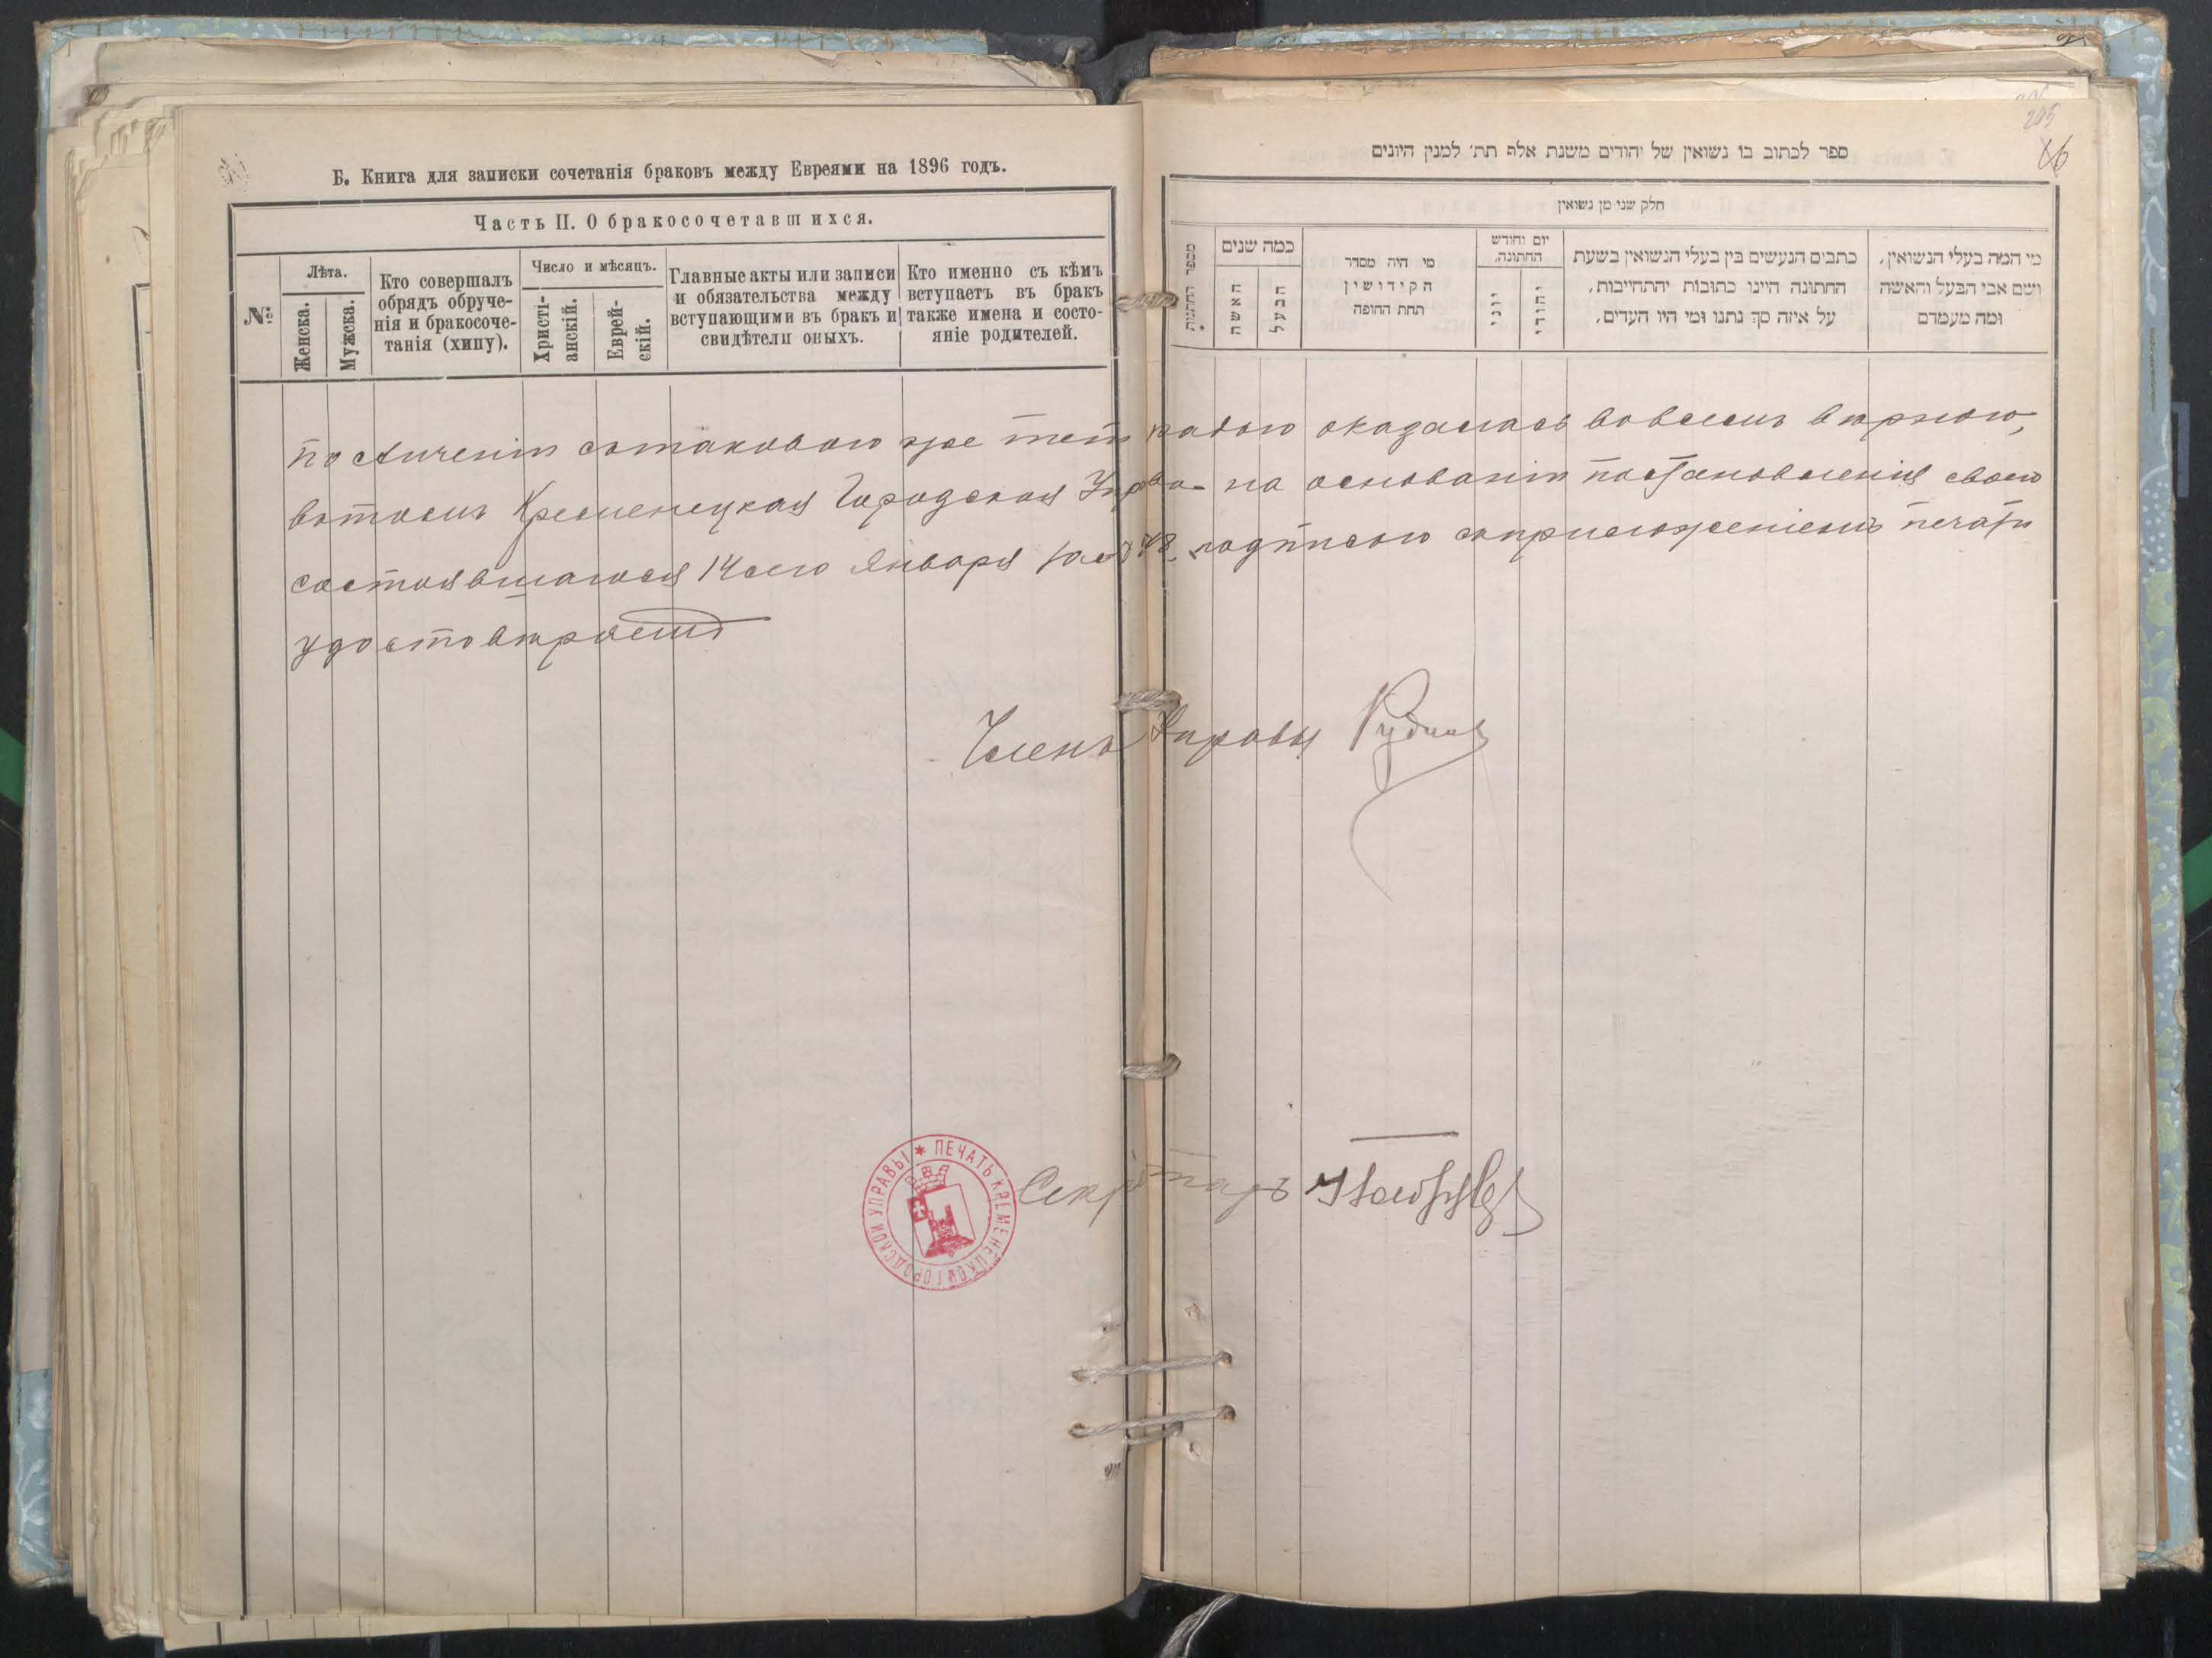 Б. Книга для записки сочетанія браковъ между Евреями на 1896 годъ.
Часть II. О бракосочетавшихся.
№
Лѣта.
Женска.
Мужска.
Кто совершалъ
обрядъ обруче-
нія и бракосоче-
танія (хипу).
Число и мѣсяцъ.
Христі-
анскій.
Еврей-
скій.
Главные акты или записи
и обязательства между
вступающими въ бракъ и
свидѣтели оныхъ.
Кто именно съ кѣмъ
вступаетъ въ бракъ
также имена и состо-
яніе родителей.
ספר לכתוב בו נשואין של יהודים משנת אלף תת׳ למנין היונים
205
חלק שני מן נשואין
מספר החתונות
כמה שנים
האשה
הבעל
מי היה מסדר
הקידושין
תחת החופה
יום וחודש
החתונה.
יווני
יהודי
כתבים הנעשים בין בעלי הנשואין בשעת
החתונה היינו כתובות והתחייבות,
על איזה סך נתנו ומי היו העדים,
מי המה בעלי הנשואין,
ושם אבי הבעל והאשה
ומה מעמדם
по сличеніи съ таковою же тетрадью оказалась вовсемъ вѣрною,
въ томъ Кременецкая Городская Управа на основаніи постановленія своего
состоявшагося 14 сего Января подписью съ приложеніемъ печати
удостовѣряетъ
Членъ Управы
Секретарь
ПЕЧАТЬ КРЕМЕНЕЦКОЙ ГОРОДСКОЙ УПРАВЫ